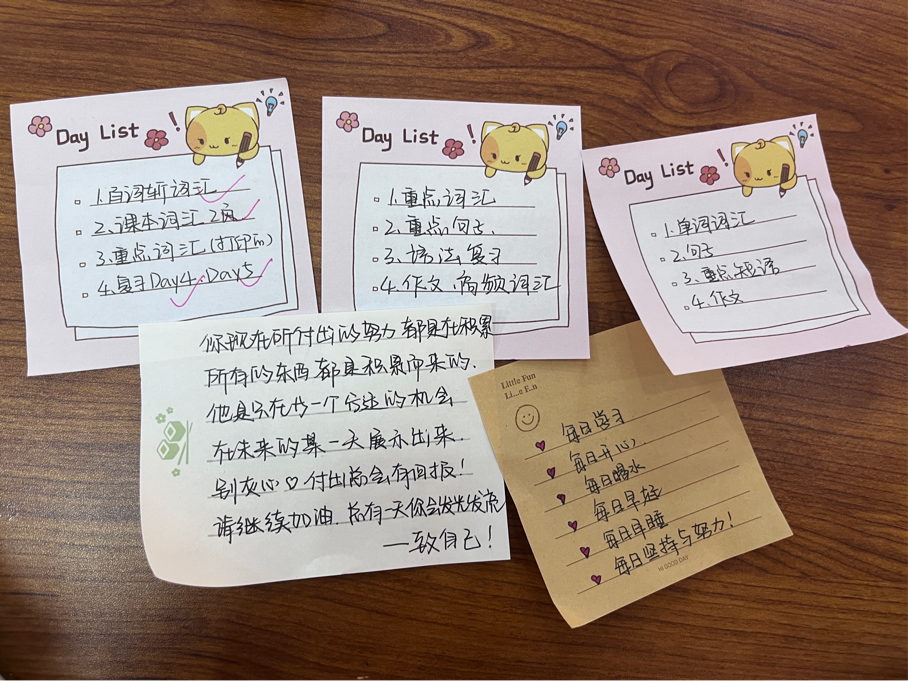 Day List
1.百词斩词汇
2.课本词汇2页
3.重点词汇(打印)
4.复习Day4.Day5
Day List
1.重点词汇
2.重点句子.
3.语法复习
4.作文.高频词汇
Day List
1.单词词汇
2.句子
3.重点短语
4.作文
你现在所付出的努力都是在积累
所有的东西都是积累而来的.
他是只在为一个合适的机会
在未来的某一天展示出来.
别灰心♡付出总会有回报!
请继续加油.总有一天你会发光发亮
—致自己!
Little Fun
每日学习
每日开心
每日喝水
每日早起
每日早睡
每日坚持与努力!
Hi GOOD DAY